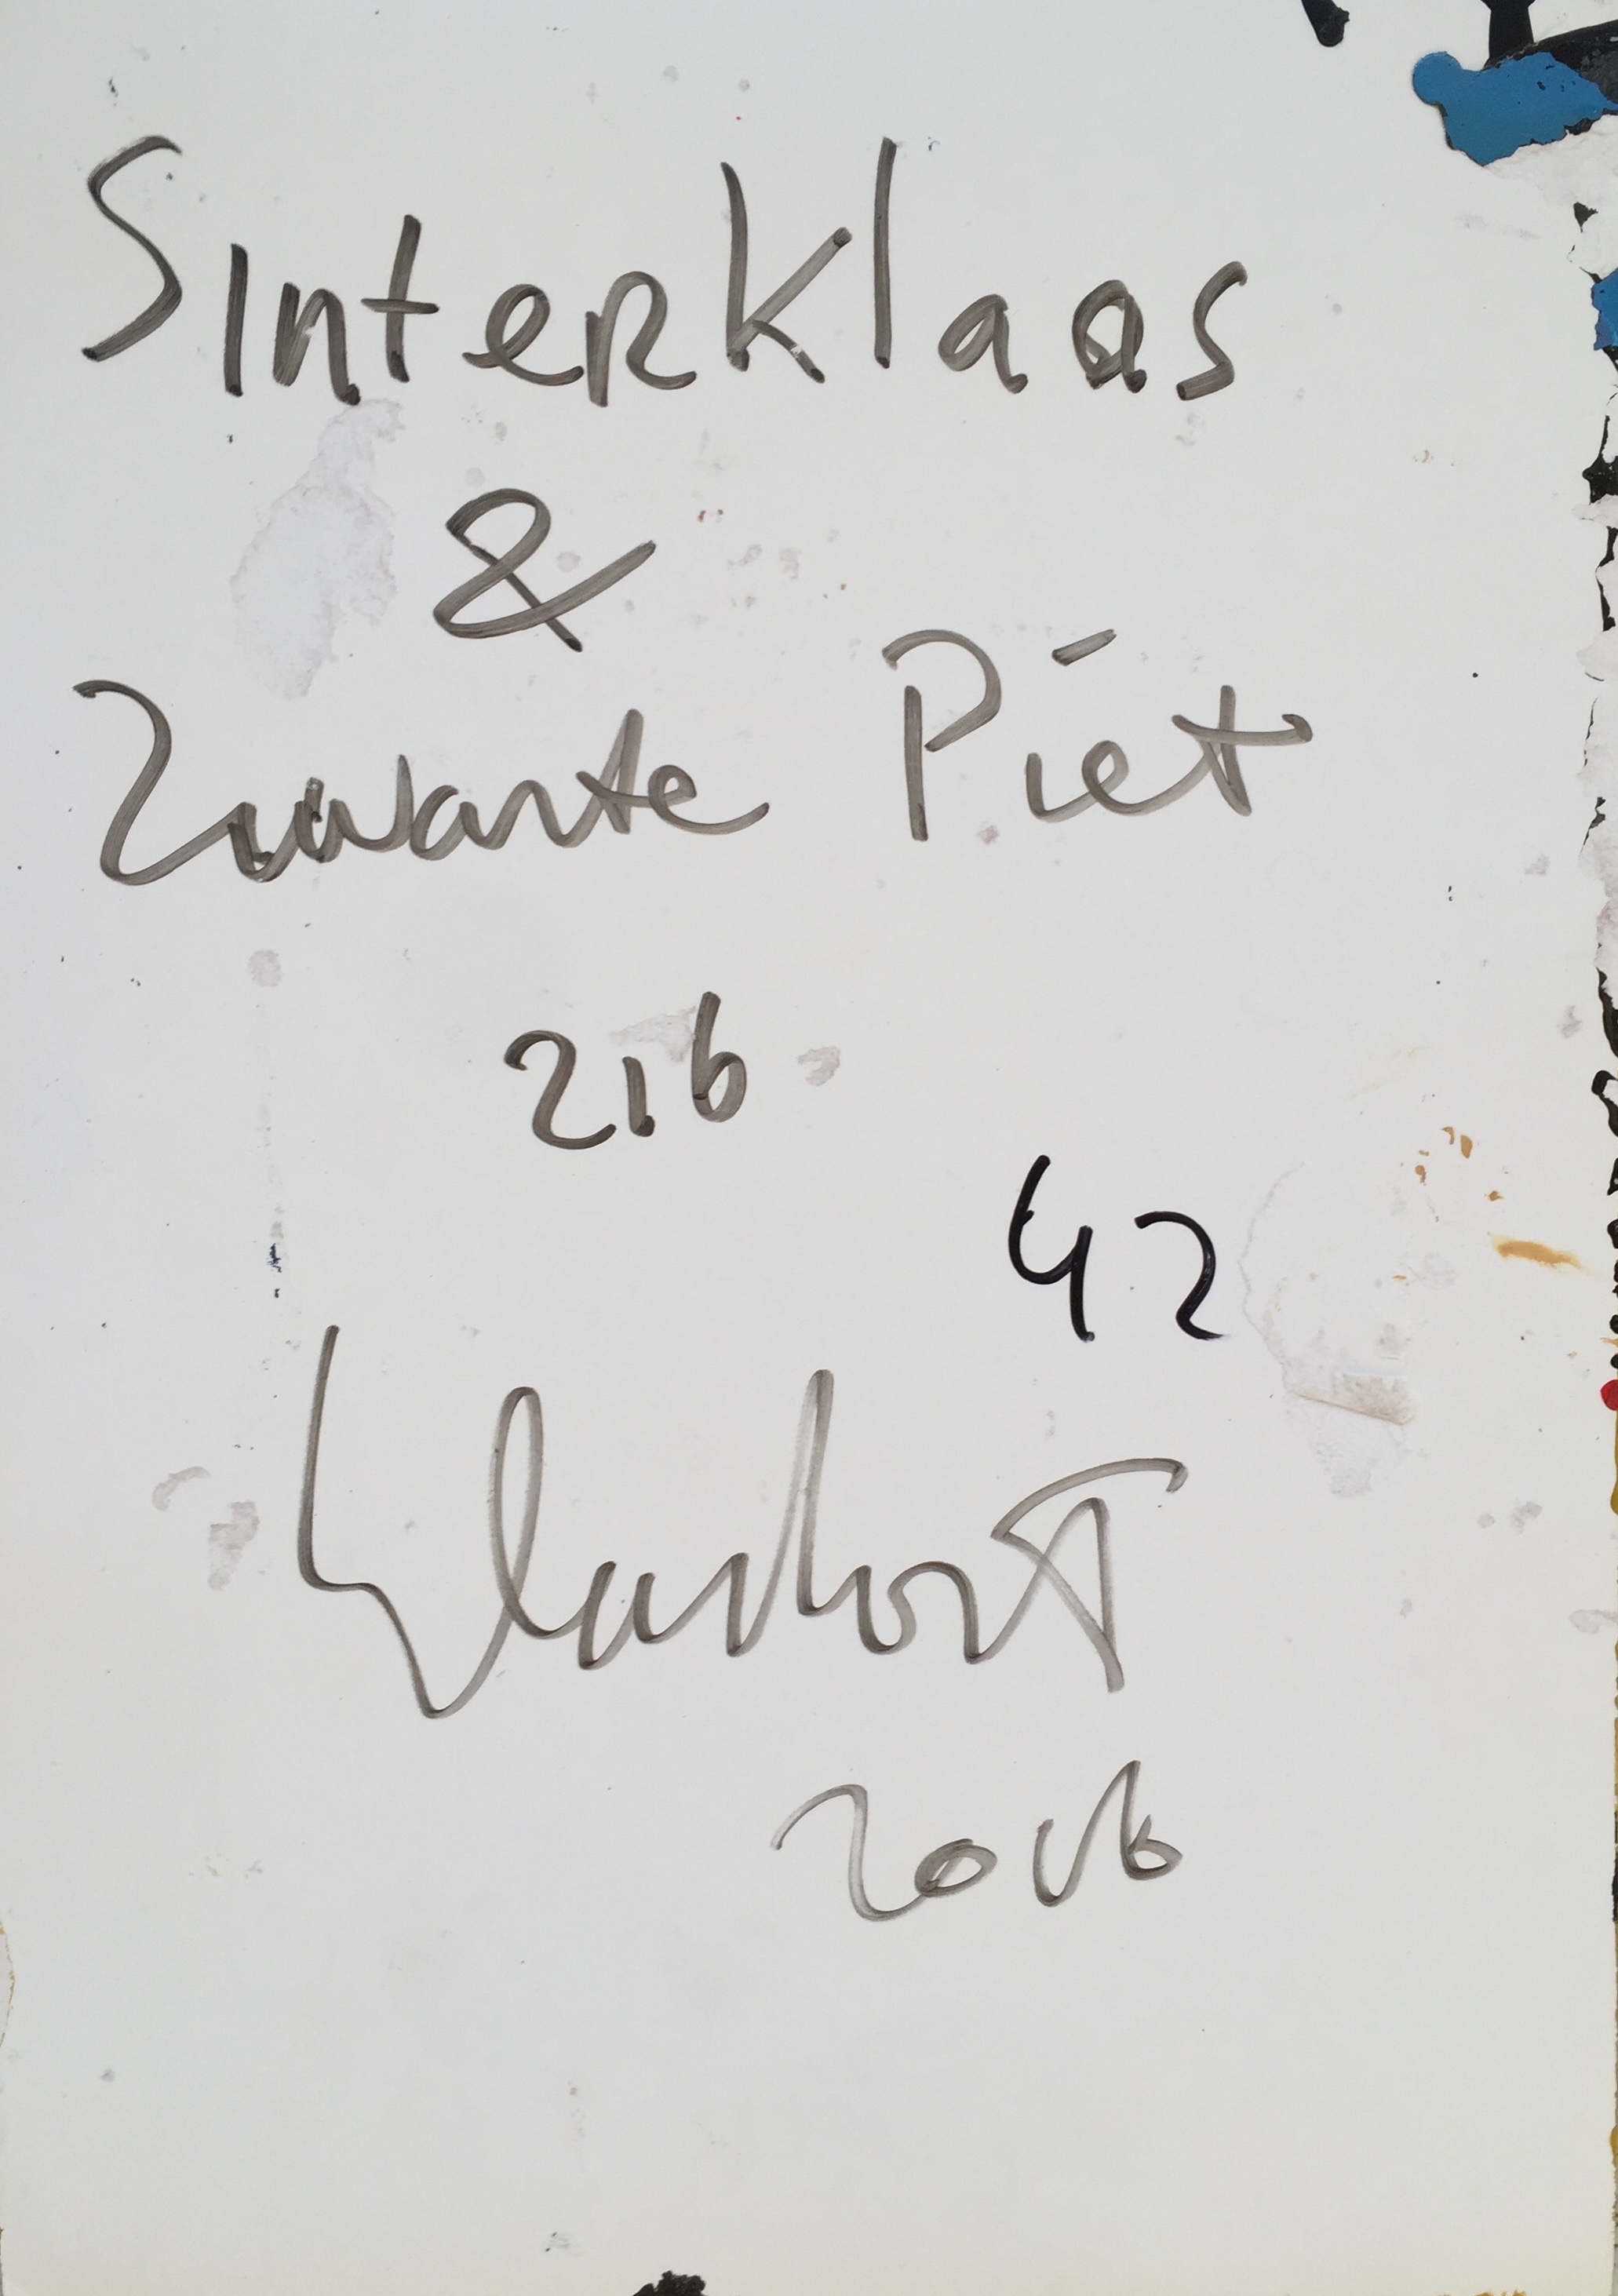 Sinterklaas
&
Zwarte Piet
216
42
2016